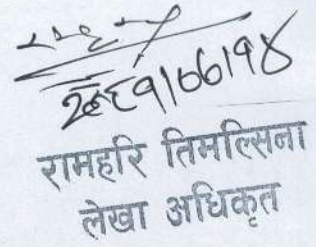 २०७९/०७/१४
रामहरि तिमल्सिना
लेखा अधिकृत